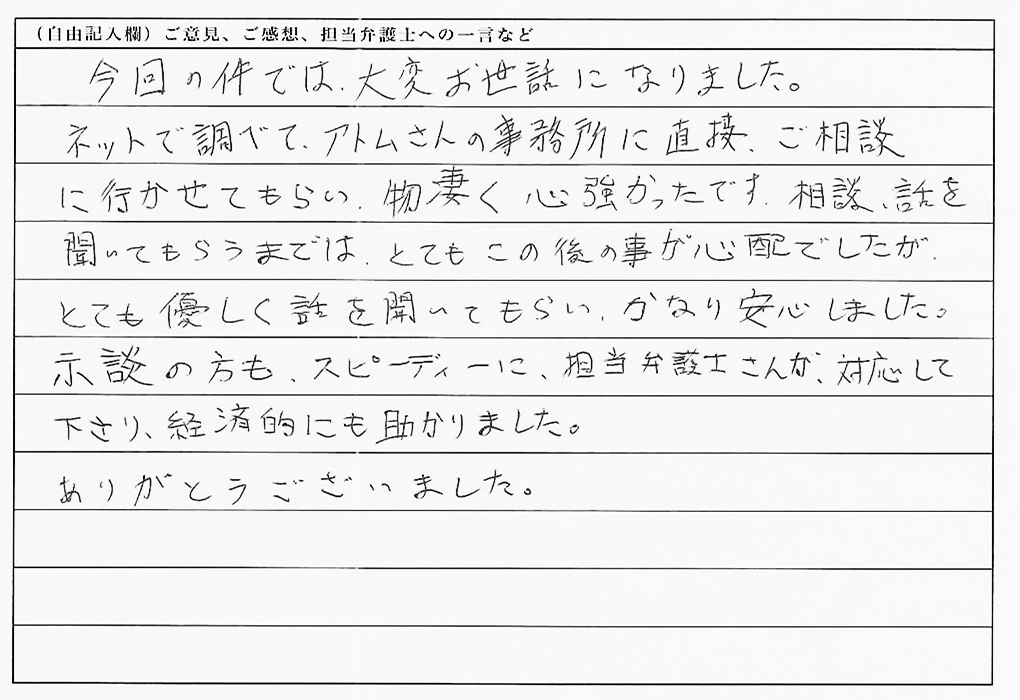 （自由記入欄）ご意見、ご感想、担当弁護士への一言など
今回の件では、大変お世話になりました。
ネットで調べて、アトムさんの事務所に直接、ご相談
に行かせてもらい、物凄く心強かったです。相談、話を
聞いてもらうまでは、とてもこの後の事が心配でしたが、
とても優しく話を聞いてもらい、かなり安心しました。
示談の方も、スピーディーに、担当弁護士さんが、対応して
下さり、経済的にも助かりました。
ありがとうございました。